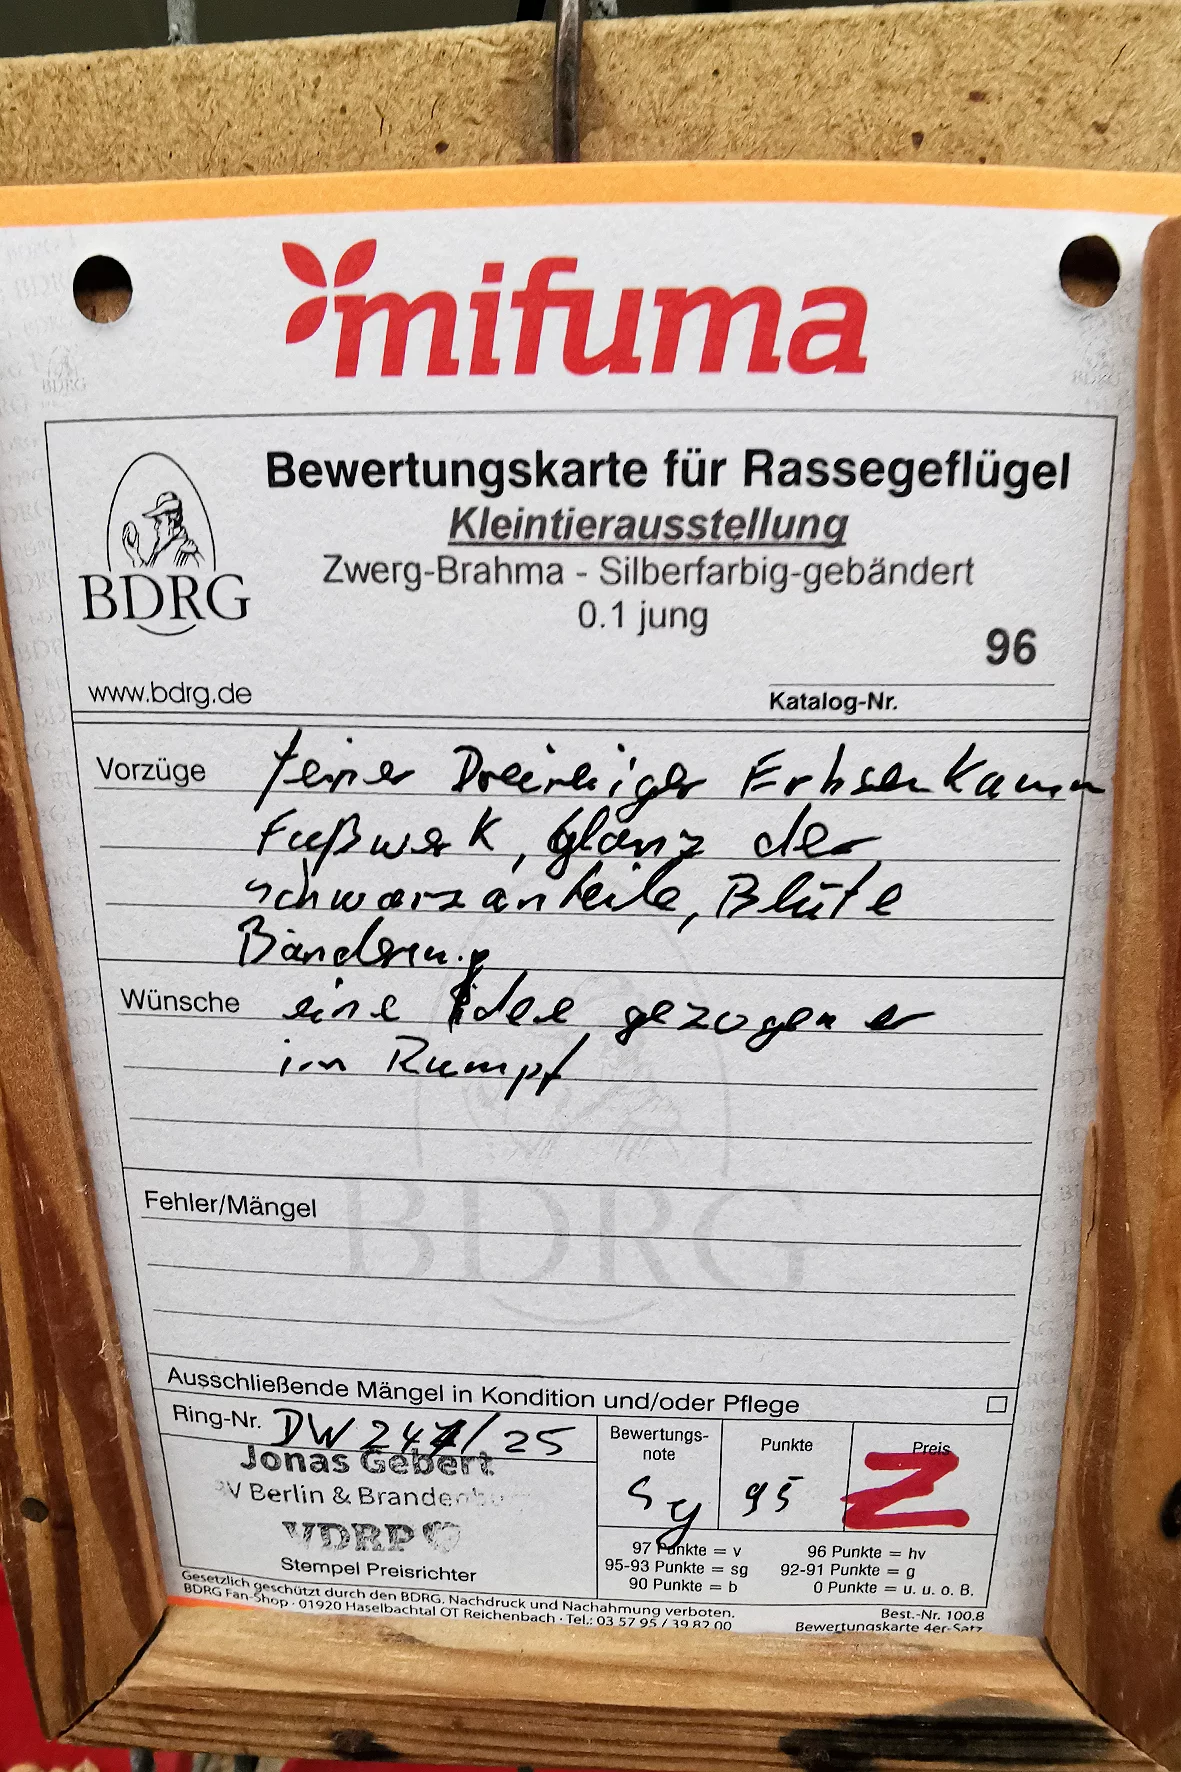 mifuma
Bewertungskarte für Rassegeflügel
Kleintierausstellung
Zwerg-Brahma - Silberfarbig-gebändert
0.1 jung
96
BDRG
www.bdrg.de
Katalog-Nr.
Vorzüge feiner Dreireihiger Erbsenkamm
Fußwerk, Glanz der
schwarzanteile, Blüte
Bänderung
Wünsche eine Idee gezogener
im Rumpf
BDRG
Fehler/Mängel
Ausschließende Mängel in Kondition und/oder Pflege
Ring-Nr. DW /25
Jonas Gebert
Berlin & Brandenburg
VDRP
Stempel Preisrichter
Bewertungs-
note
Sg
Punkte
95
Preis
Z
97 Punkte = v
96 Punkte = hv
95-93 Punkte = sg
92-91 Punkte = g
90 Punkte = b
0 Punkte = u. u. o. B.
Gesetzlich geschützt durch den BDRG. Nachdruck und Nachahmung verboten.
BDRG Fan-Shop · 01920 Haselbachtal OT Reichenbach · Tel.: 03 57 95 / 39 82 00
Best.-Nr. 100.8
Bewertungskarte 4er-Satz